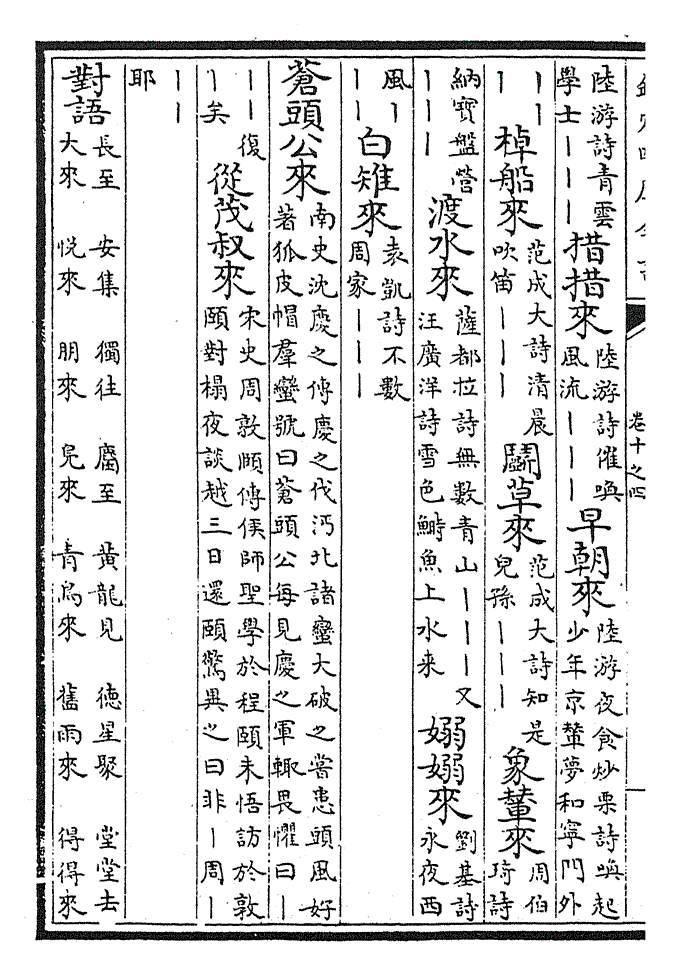 欽定四庫全書
卷十之四
陸游詩青雲
學士｜｜｜
措措來
陸游詩催喚
風流｜｜｜
早朝來
陸游夜食炒栗詩喚起
少年京輦夢和寧門外
｜｜
｜
棹船來
范成大詩清晨
吹笛｜｜｜
鬭草來
范成大詩知是
兒孫｜｜｜
象輦來
周伯
琦詩
納寶盤營
｜｜｜
渡水來
薩都拉詩無數青山｜｜｜又
汪廣洋詩雪色鰣魚上水来
嫋嫋來
劉基詩
永夜西
風｜
｜｜
白雉來
袁凱詩不數
周家｜｜｜
蒼頭公來
南史沈慶之傳慶之伐沔北諸蠻大破之嘗患頭風好
著狐皮帽羣蠻號曰蒼頭公每見慶之軍輙畏懼曰｜
｜｜復
｜矣
從茂叔來
宋史周敦頤傳侯師聖學於程頤未悟訪於敦
頤對榻夜談越三日還頤驚異之曰非｜周｜
｜｜
耶
對語
長至 安集 獨往 鴈至 黃龍見 德星聚 堂堂去
大來 悦來 朋來 鳬來 青鳥來 舊雨來 得得來